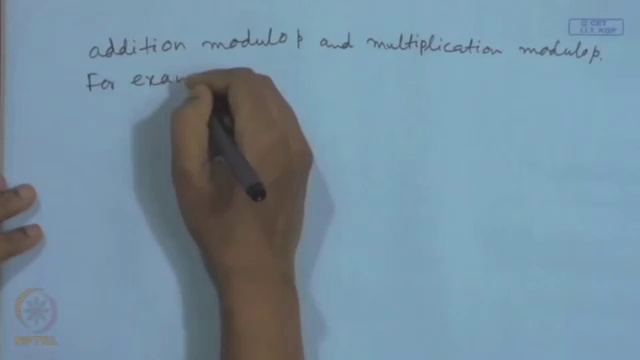 addition modulo p and multiplication modulo p.
For exam
© CET
I.I.T. KGP
NPTEL